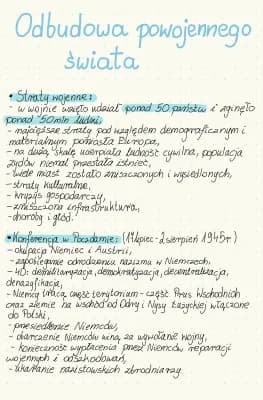 Odbudowa powojennego
świata
• Straty wojenne:
- w wojnie wzięto udział ponad 50 państw i zginęło
ponad 50 mln ludzi,
- największe straty pod względem demograficznym i
materialnym poniosła Europa,
- na dużą skalę ucierpiała ludność cywilna, populacja
żydów niemal przestała istnieć,
- wiele miast zostało zniszczonych i wysiedlonych,
- straty kulturalne,
- kryzys gospodarczy,
- zniszczona infrastruktura,
- choroby i głód.
• Konferencja w Poczdamie: (17 lipiec - 2 sierpień 1945r)
- okupacja Niemiec i Austrii,
- zapobieganie odrodzeniu nazizmu w Niemczech.
- 4D: demilitaryzacja, demokratyzacja, decentralizacja,
denazyfikacja,
- Niemcy tracą część terytorium - część Prus Wschodnich
oraz ziemie na wschód od Odry i Nysy Łużyckiej włączone
do Polski,
- przesiedlenie Niemców,
- obarczenie Niemców winą za wywołanie wojny,
- konieczność wypłacenia przez Niemców reparacji
wojennych i odszkodowań,
- ukaranie nazistowskich zbrodniarzy.